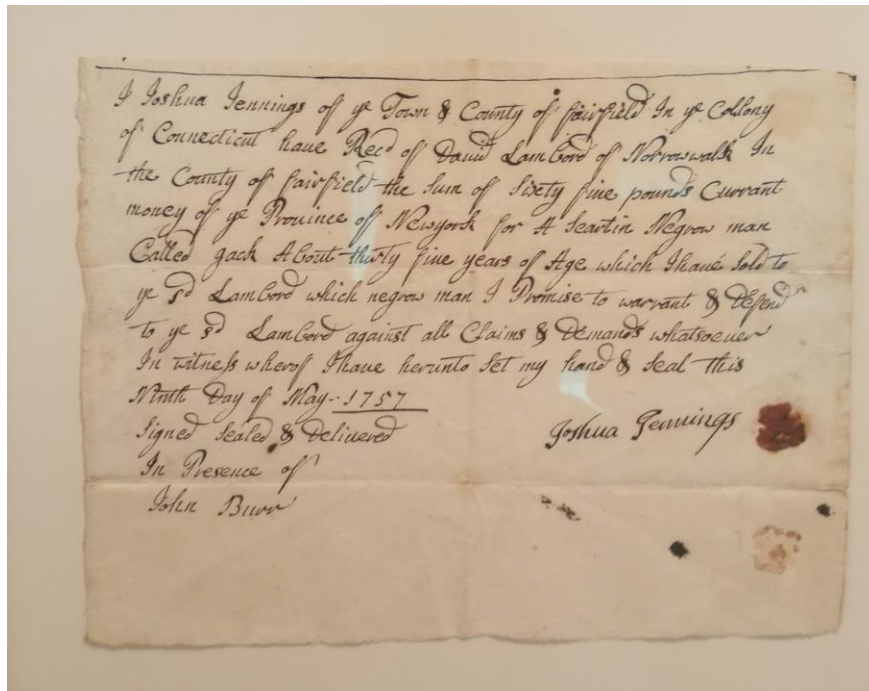 I Joshua Jennings of ye Town & County of fairfield In ye Collony
of Connecticut have Recd of David Lambord of Norrowwalk In
the County of fairfield the Sum of Sixty five pounds Currant
money of ye Province of Newyork for A Seartin Negrow man
Called gack About thirty five years of Age which I have Sold to
ye sd Lambord which negrow man I Promise to warrant & Deffend
to ye sd Lambord against all Claims & Demands whatsoever
In witness wherof I have herunto Set my hand & Seal this
Ninth Day of May - 1757
Signed Sealed & Delivered
Joshua Jennings
In Presence of
John Burr